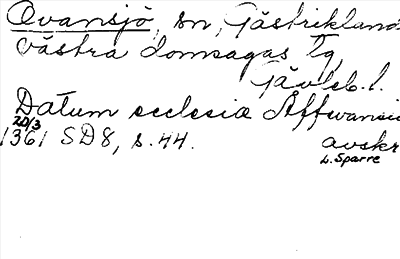 Ovansjö, sn, Gästrikland
västra domsagas tg,
Gävleb. l.
Datum ecclesiæ Affwansiö
20/3
1361 SD8, s. 44. avskr
L. Sparre